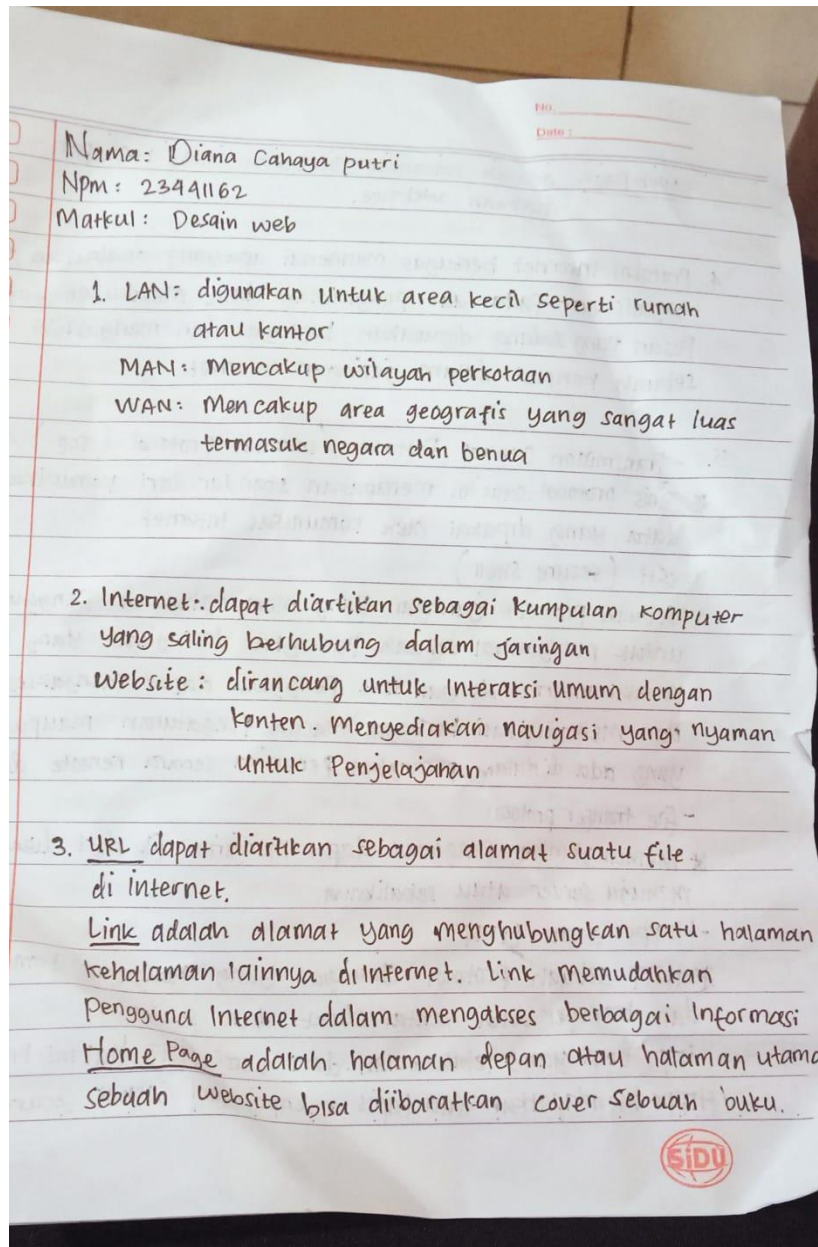 No.
Date :
Nama: Diana Cahaya putri
Npm: 23441162
Matkul: Desain web
1. LAN: digunakan Untuk area kecil seperti rumah
atau kantor
MAN: Mencakup wilayah perkotaan
WAN: Mencakup area geografis yang sangat luas
termasuk negara dan benua
2. Internet: dapat diartikan sebagai kumpulan komputer
yang saling berhubung dalam jaringan
Website: dirancang untuk Interaksi Umum dengan
konten. Menyediakan navigasi yang nyaman
Untuk Penjelajahan
3. URL dapat diartikan sebagai alamat suatu file
di internet.
Link adalah alamat yang menghubungkan satu halaman
kehalaman lainnya diinternet. Link memudahkan
Pengguna Internet dalam mengakses berbagai Informasi
Home Page adalah halaman depan atau halaman utama
sebuah website bisa diibaratkan cover sebuah buku.
SiDU